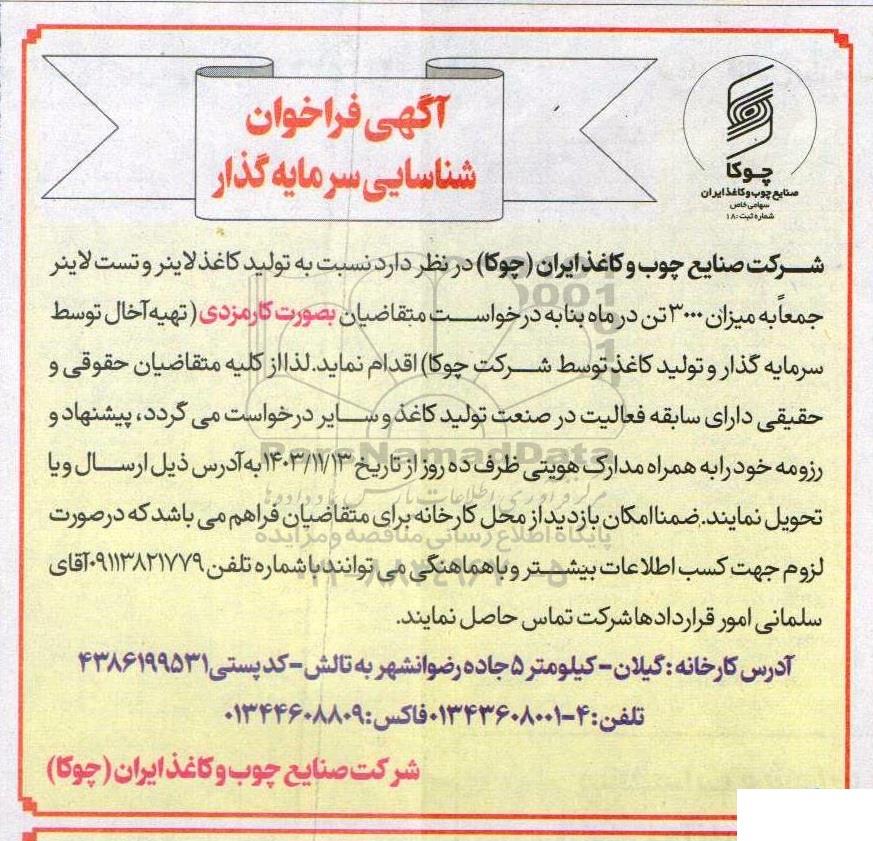 چوکا
صنایع چوب و کاغذ ایران
سهامی خاص
شماره ثبت: ۱۸
آگهی فراخوان
شناسایی سرمایه گذار
شرکت صنایع چوب و کاغذ ایران (چوکا) در نظر دارد نسبت به تولید کاغذ لاینر و تست لاینر
جمعاً به میزان ۳۰۰۰ تن در ماه بنا به درخواست متقاضیان بصورت کارمزدی (تهیه آخال توسط
سرمایه گذار و تولید کاغذ توسط شرکت چوکا) اقدام نماید. لذا از کلیه متقاضیان حقوقی و
حقیقی دارای سابقه فعالیت در صنعت تولید کاغذ و سایر درخواست می گردد، پیشنهاد و
رزومه خود را به همراه مدارک هویتی ظرف ده روز از تاریخ ۱۴۰۳/۱۱/۱۳ به آدرس ذیل ارسال و یا
تحویل نمایند. ضمنا امکان بازدید از محل کارخانه برای متقاضیان فراهم می باشد که درصورت
لزوم جهت کسب اطلاعات بیشتر و یا هماهنگی می توانند با شماره تلفن ۰۹۱۱۳۸۲۱۷۷۹ آقای
سلمانی امور قراردادها شرکت تماس حاصل نمایند.
آدرس کارخانه: گیلان - کیلومتر ۵ جاده رضوانشهر به تالش - کد پستی ۴۳۸۶۱۹۹۵۳۱
تلفن: ۴-۰۱۳۴۳۶۰۸۰۰۱ فاکس: ۰۱۳۴۴۶۰۸۸۰۹
شرکت صنایع چوب و کاغذ ایران (چوکا)
ParsNamadData
پایگاه اطلاع رسانی مناقصه و مزایده